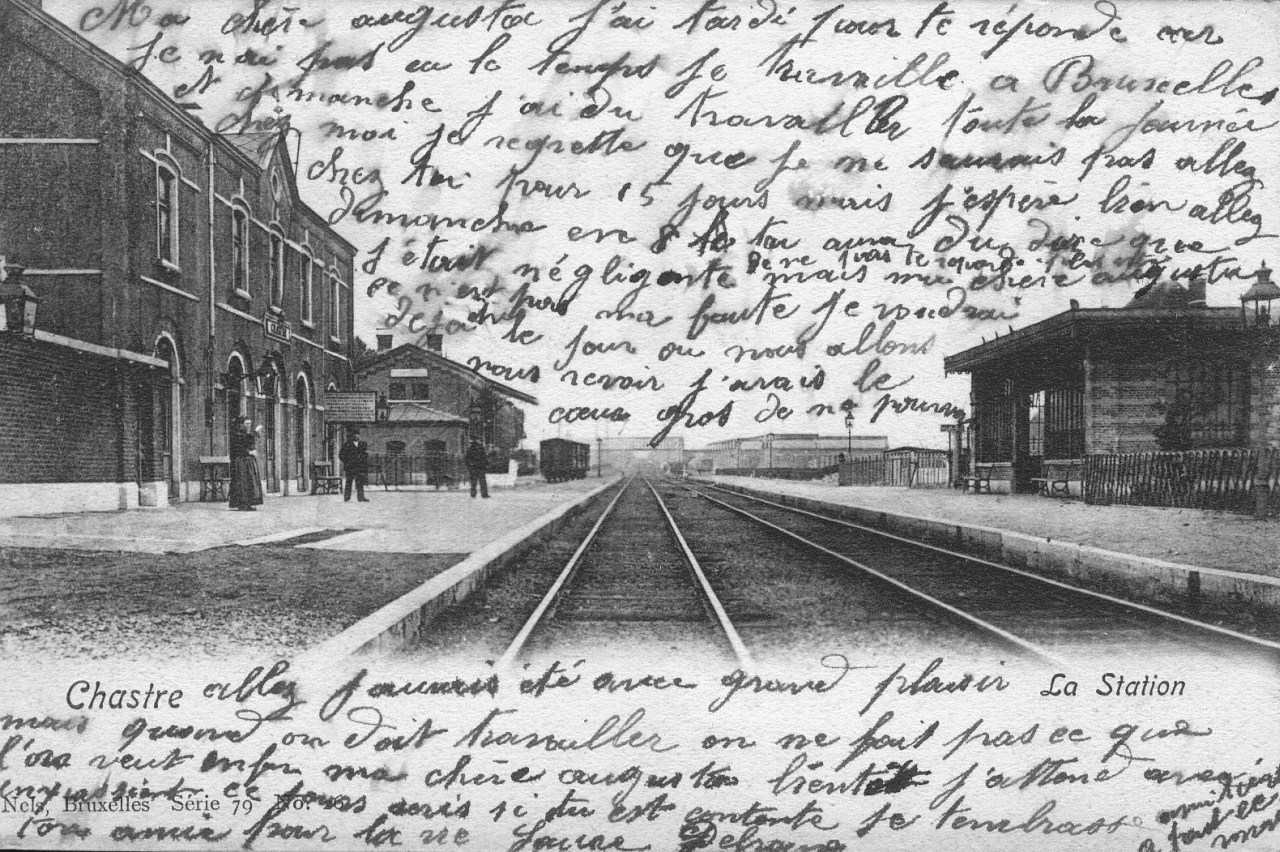 Ma chère augusta j'ai tardé pour te réponde car
je nai pas eu le temps je travaille a Bruxelles
et dimanche j'ai du travaller toute la journée
chez moi je regrette que je ne saurais pas allez
chez toi pour 15 jours mais j'espère bien allez
dimanche en 8 tu aura du dire que
j'étuit négligente mais ma chère augusta
de ne pas te reponde
ce n'est pas ma faute je voudrai
deja le jour ou nous allons
nous revoir j'avais le
cœur gros de ne pouvoir
CHASTRE
Chastre
allez j'aurais été avec grand plaisir
La Station
mais quand on doit travailler on ne fait pas ce que
l'on veut enfin ma chère augusta bientôt j'attend avec
ce jours ecris si tu est contente je tembrasse
Nels, Bruxelles Série 79 No.
ton amie pour la vie Laure
amitiés
a tout le
monde